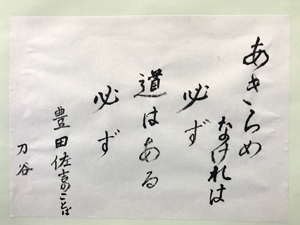 あきらめ
なければ
必ず
道はある
必ず
豊田佐吉のことば
刀谷